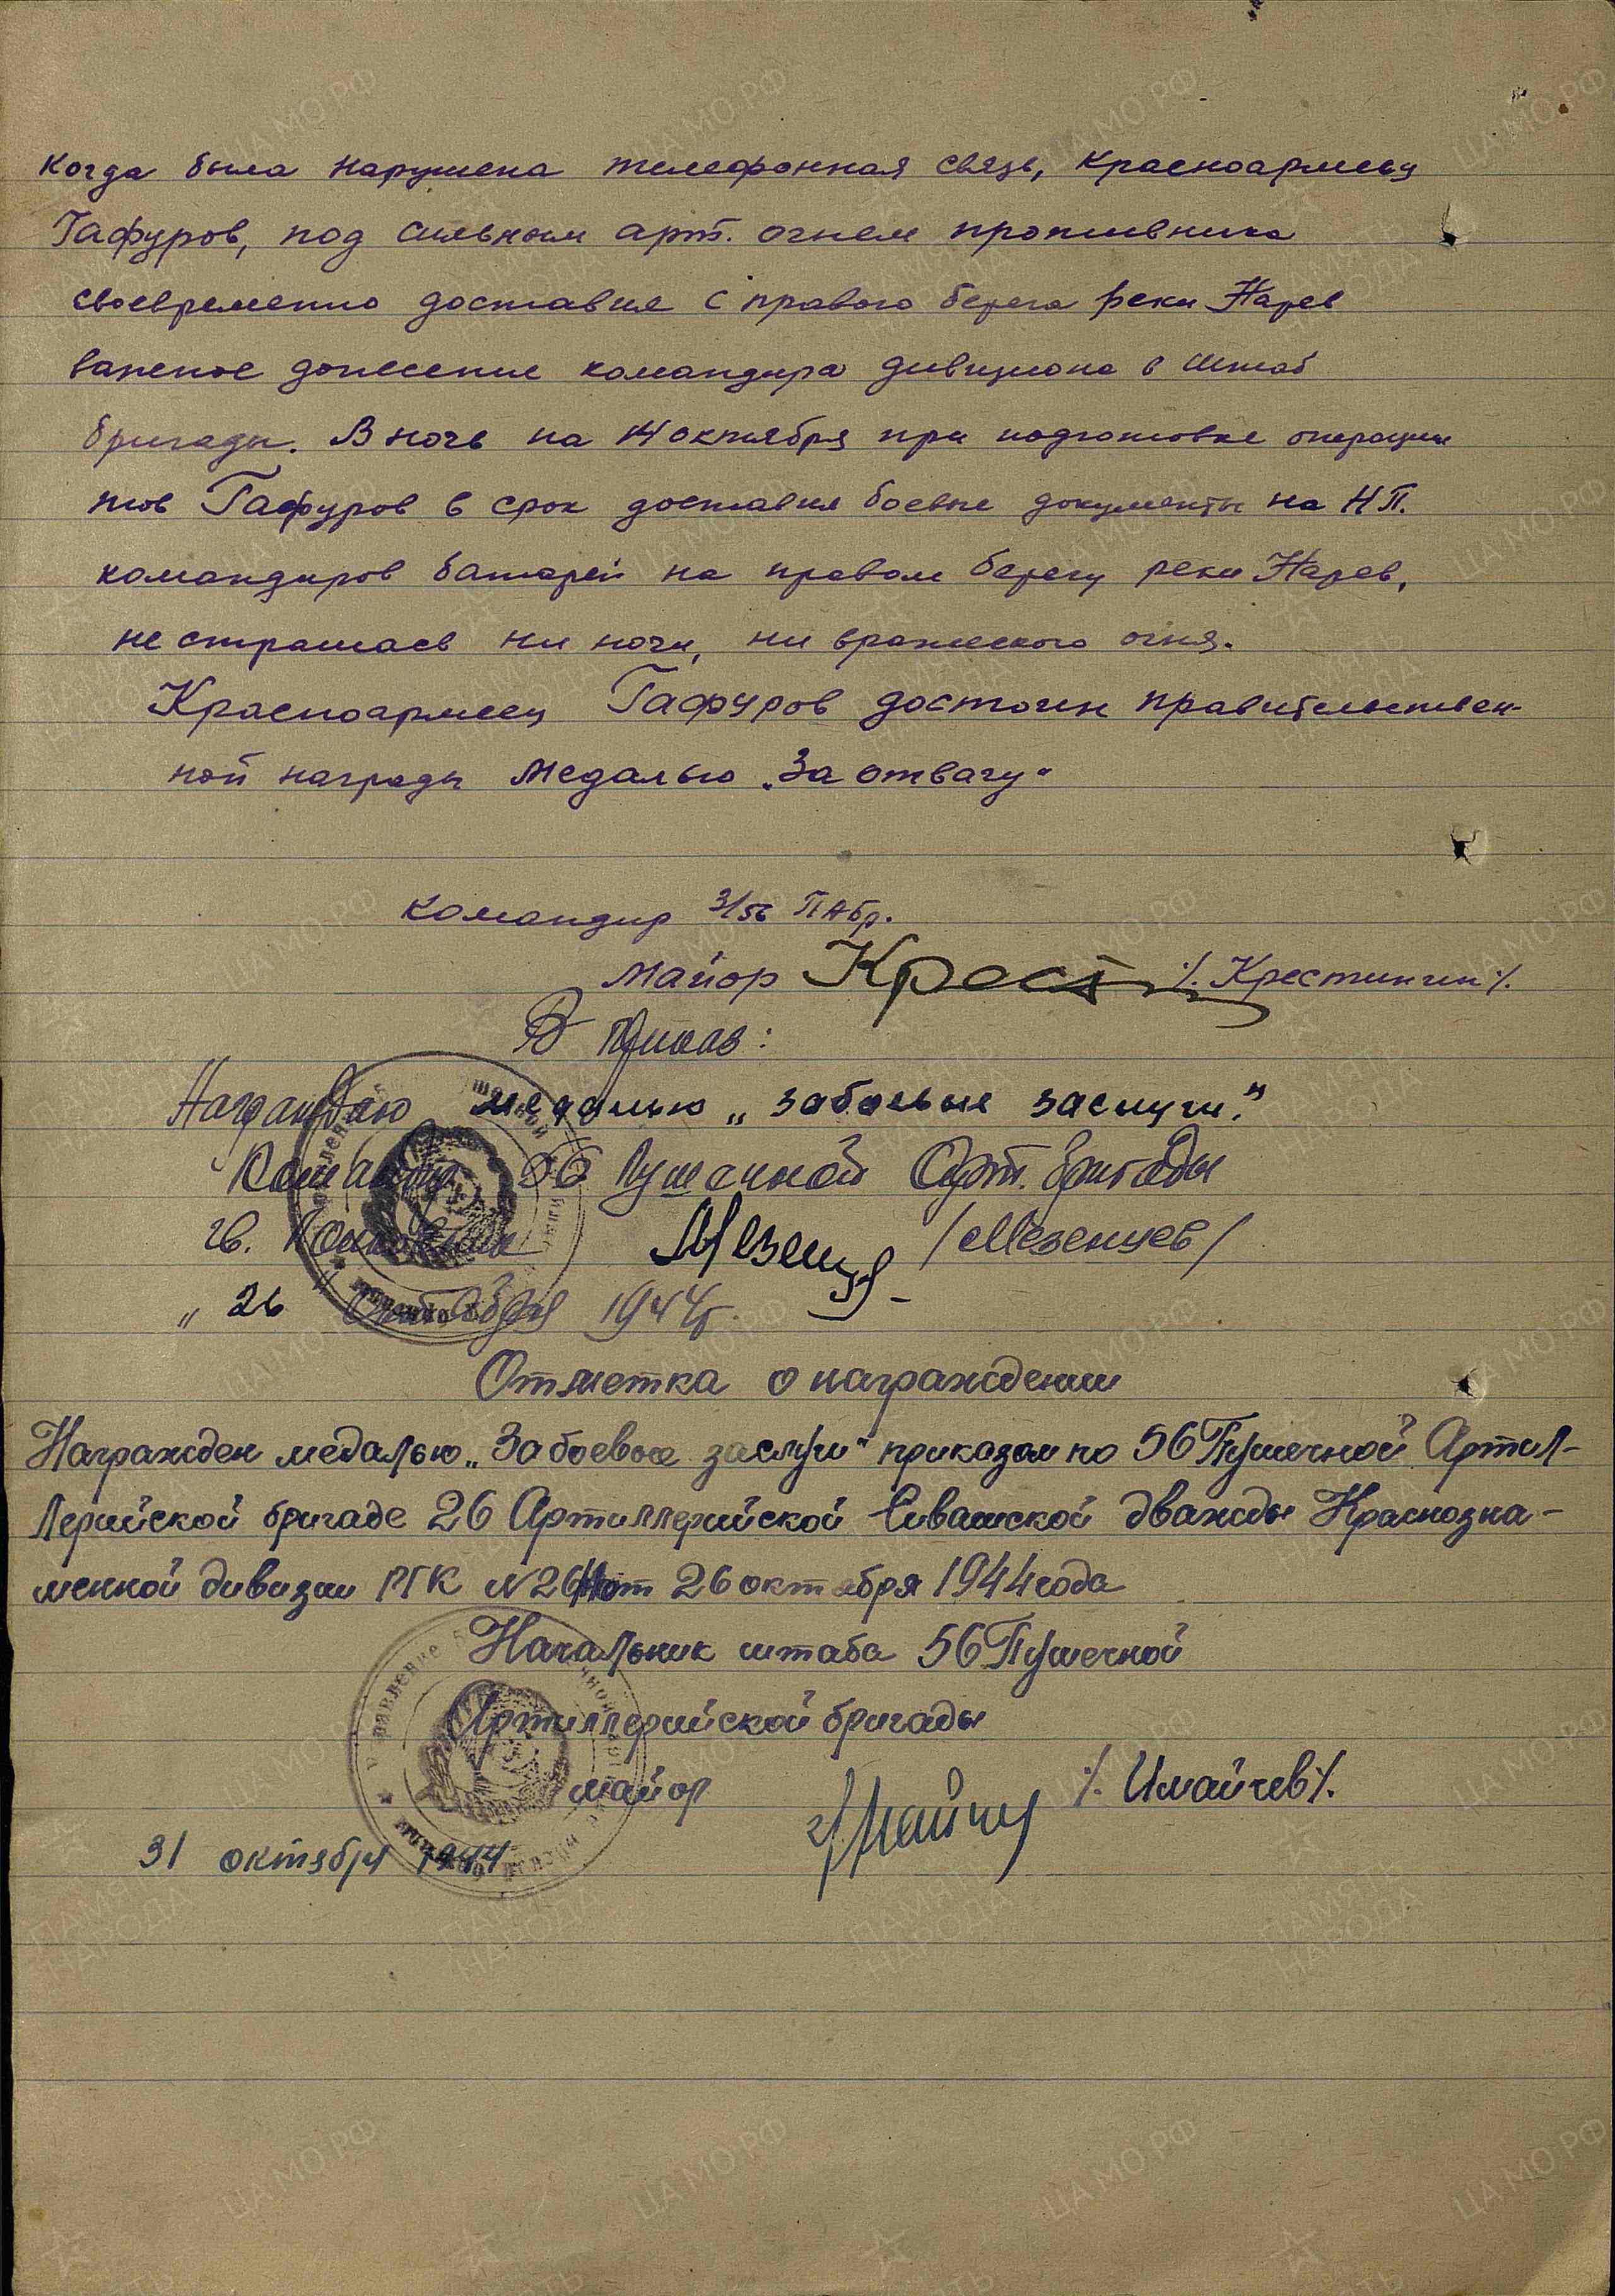 когда была нарушена телефонная связь, красноармеец
Гафуров, под сильным арт. огнем противника
своевременно доставил с правого берега реки Нарев
важное донесение командира дивизиона в штаб
бригады. В ночь на 14 октября при подготовке операции
тов Гафуров в срок доставил боевые документы на НП.
командиров батарей на правом берегу реки Нарев,
не страшась ни ночи, ни вражеского огня.
Красноармеец Гафуров достоин правительствен-
ной награды Медалью „За отвагу"
Командир 3/56 ПАбр.
майор ⁒ Крестинин ⁒.
В приказ:
Награждаю медалью „за боевые заслуги."
Командир 56 Пушечной Арт. бригады
гв. Полковник Мезенцев /Мезенцев/
„ 26 октября 1944г.
Отметка о награждении
Награжден медалью „За боевые заслуги" приказом по 56 Пушечной Артил-
лерийской бригаде 26 Артиллерийской Сивашской дважды Краснозна-
менной дивизии РГК от 26 октября 1944 года
Начальник штаба 56 Пушечной
Артиллерийской бригады
майор ⁒ Имайчев ⁒.
31 октября 1944
ЦА МО РФ
ПАМЯТЬ НАРОДА